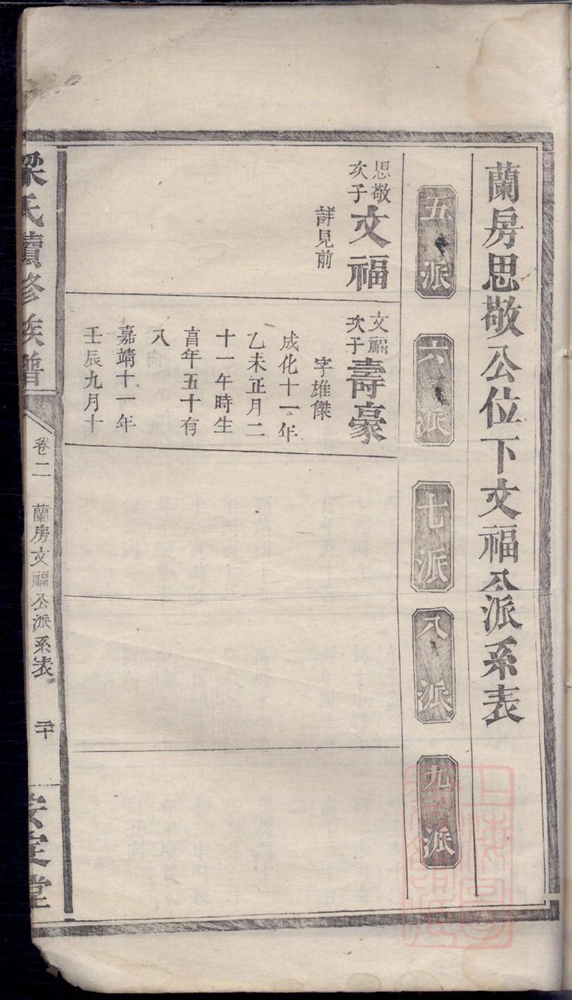 蘭房思敬公位下文福公派系表
五派
六派
七派
八派
九派
思敬
次子
文福
詳見前
文福
次子
壽豪
字雄傑
成化十一年
乙未正月二
十一午時生
享年五十有
八
嘉靖十一年
壬辰九月十
梁氏續修族譜
卷二
蘭房文福公派系表
三十
安定堂